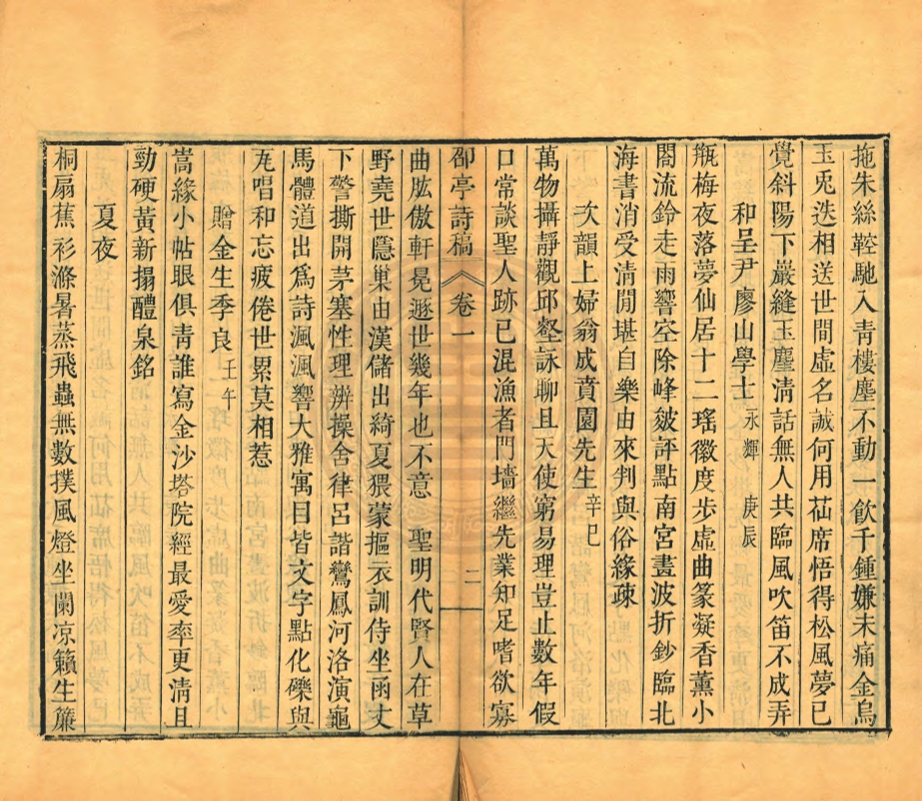 拖朱絲鞚馳入靑樓塵不動一飮千鍾嫌未痛金烏
玉兎迭相送世間虛名誠何用菇席悟得松風夢已
覺斜陽下巖縫玉麈淸話無人共臨風吹笛不成弄
和呈尹廖山學士 永輝 庚辰
甁梅夜落夢仙居十二瑤徽度步虛曲篆凝香薰小
閤流鈴走雨響空除峰皴評點南宮畫波折鈔臨北
海書消受淸閒堪自樂由來判與俗緣疎
次韻上婦翁成賁園先生 辛巳
萬物攝靜觀邱壑詠聊且天使窮易理豈止數年假
口常談聖人跡已混漁者門墻繼先業知足嗜欲寡
卲亭詩稿 卷一 二
曲肱傲軒冕遯世幾年也不意 聖明代賢人在草
野堯世隱巢由漢儲出綺夏猥蒙摳衣訓侍坐凾丈
下警撕開茅塞性理辨操舍律呂諧鸞鳳河洛演龜
馬體道出爲詩渢渢響大雅寓目皆文字點化礫與
𤬪唱和忘疲倦世累莫相惹
贈金生季良 壬午
嵩緣小帖眼俱靑誰寫金沙塔院經最愛率更淸且
勁硬黃新搨醴泉銘
夏夜
桐扇蕉衫滌暑蒸飛蟲無數撲風燈坐闌凉籟生簾